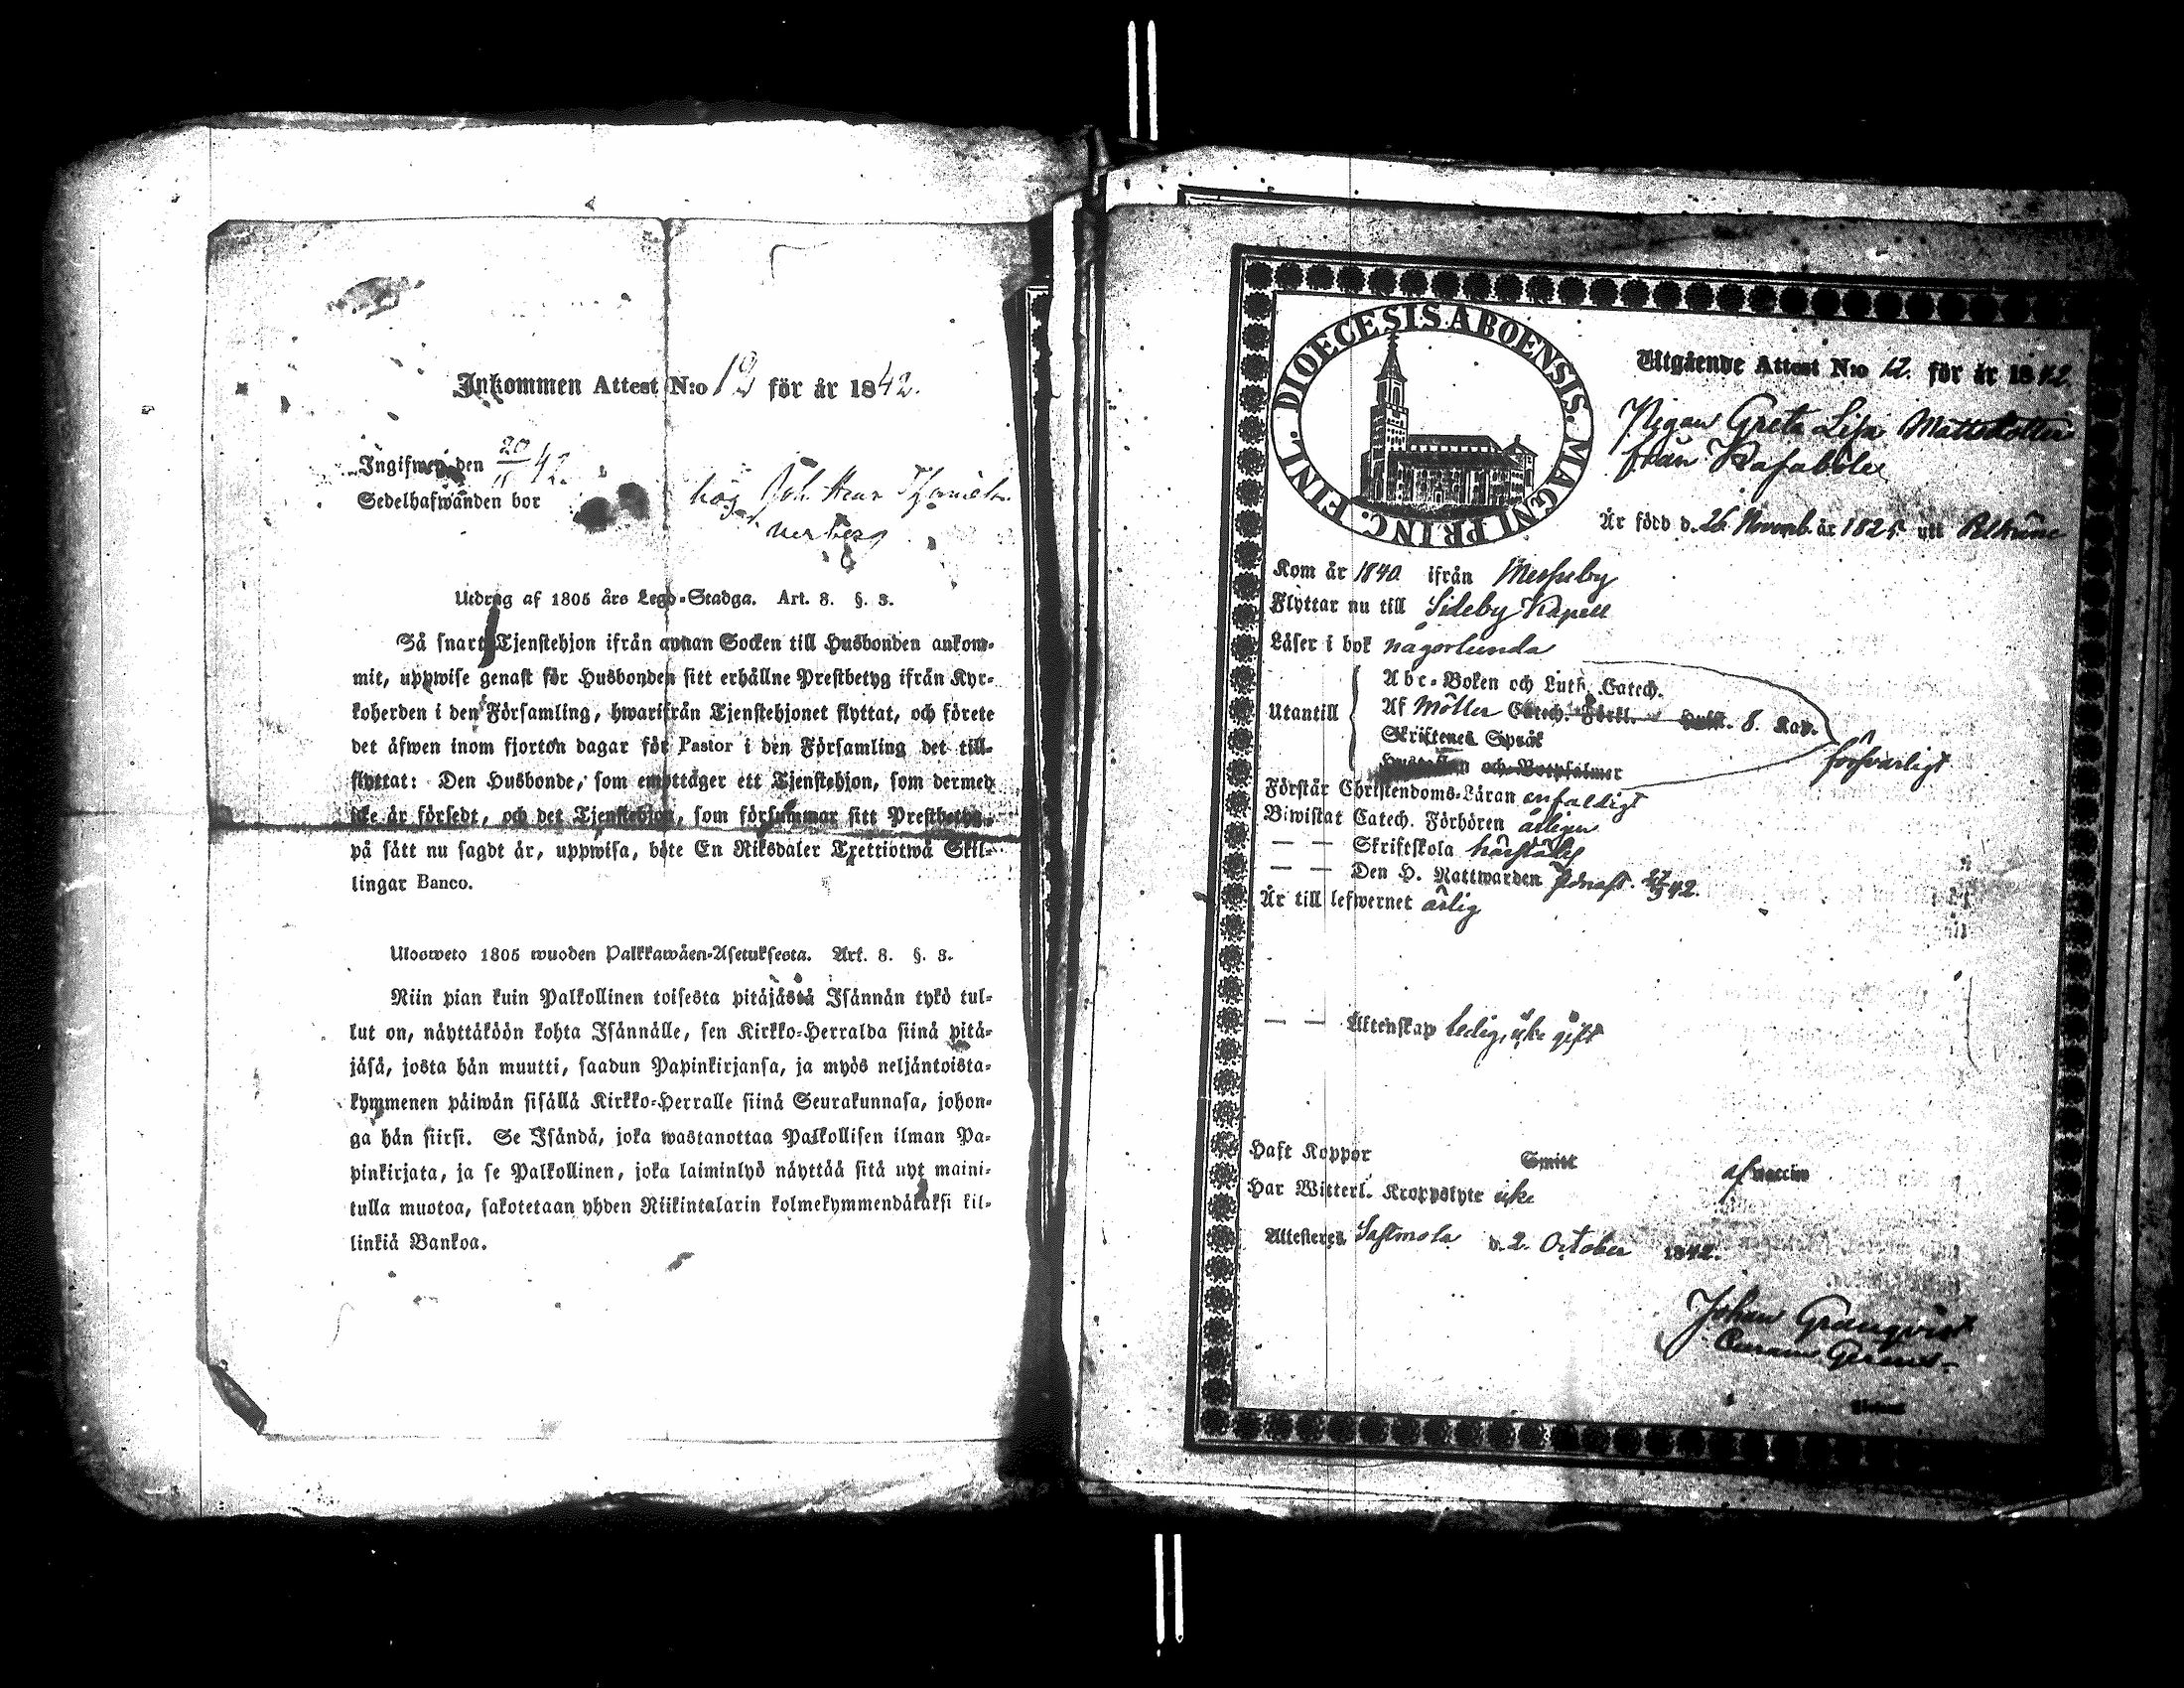 Inkommen Attest N:o 12 för år 1842.
Ingifwen den 20/11 42.
Sedelhafwanden bor hos Joh.
Utdrag af 1805 års Lego-Stadga. Art. 8. §. 3.
Så snart Tjenstehjon ifrån annan Socken till Husbonden ankom-
mit, uppwise genast för Husbonden sitt erhållne Prestbetyg ifrån Kyr-
koherden i den Församling, hwarifrån Tjenstehjonet flyttat, och förete
det äfwen inom fjorton dagar för Pastor i den Församling det till-
flyttat: Den Husbonde, som emottager ett Tjenstehjon, som dermed
icke är försedt, och det Tjenstehjon, som försummar sitt Prestbetyg,
på sätt nu sagdt är, uppwisa, böte En Riksdaler Trettiotwå Skil-
lingar Banco.
Ulosweto 1805 wuoden Palkkawäen-Asetuksesta. Art. 8. §. 3.
Niin pian kuin Palkollinen toisesta pitäjästä Isännän tykö tul-
lut on, näyttäköön kohta Isännälle, sen Kirkko-Herralda siinä pitä-
jäsä, josta hän muutti, saadun Papinkirjansa, ja myös neljäntoista-
kymmenen päiwän sisällä Kirkko-Herralle siinä Seurakunnasa, johon-
ga hän siirsi. Se Isändä, joka wastanottaa Palkollisen ilman Pa-
pinkirjata, ja se Palkollinen, joka laiminlyö näyttää sitä nyt maini-
tulla muotoa, sakotetaan yhden Riikintalarin kolmekymmendäkaksi kil-
linkiä Bankoa.
DIOECESIS ABOENSIS. MAGNI PRINC. FINL.
Utgående Attest N:o 12. för år 1842
Pigan Greta Lisa Mattsdotter
från Kasaböle
Är född d. 26 Novemb. år 1825 uti
Kom år 1840 ifrån
Flyttar nu till Sideby Kapell
Läser i bok någorlunda
Utantill
Abc-Boken och Luth. Catech.
Af Möller Catech. Förkl. 8. Kap.
Skriftenes Språk
Hustaflan och Botpsalmer
försvarligt
Förstår Christendoms-Läran enfaldigt
Biwistat Catech. Förhören årligen
— — Skriftskola härstädes
— — Den H. Nattwarden 42.
Är till lefwernet ärlig
— — Äktenskap ledig, icke gift
Haft Koppor Smitt af vaccin
Har Witterl. Kroppslyte icke
Attesteres Sastmola d. 2 October 1842.
Johan Granqvist